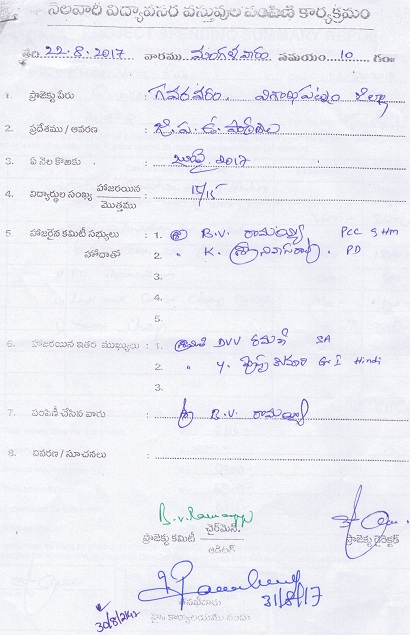 నెలవారీ విద్యావసర వస్తువుల పంపిణీ కార్యక్రమం
తేది. 22-8-2017 వారము మంగళవారం సమయం 10 గం॥
1. ప్రాజెక్టు పేరు : గవరవరం విశాఖపట్నం జిల్లా
2. ప్రదేశము / ఆవరణ : జి.ప.ఉ. పాఠశాల
3. ఏ నెల కొఱకు : జులై 2017
4. విద్యార్థుల సంఖ్య హాజరయిన / మొత్తము : 15/15
5. హాజరైన కమిటీ సభ్యులు : 1. శ్రీ B.V. రామయ్య PCC & HM
హోదాతో 2. " K. శ్రీనివాసరావు. PD
3.
4.
5.
6. హాజరయిన ఇతర ముఖ్యులు : 1. శ్రీమతి DVV రమణి SA
2. " Y. కుమారి Gr I Hindi
3.
7. పంపిణీ చేసిన వారు : శ్రీ B.V. రామయ్య
8. వివరణ / సూచనలు :
B.V. Ramayya
ప్రాజెక్టు కమిటీ చైర్మెన్. ప్రాజెక్టు డైరెక్టర్
ఆడిటర్
31/8/17
30/8/2017